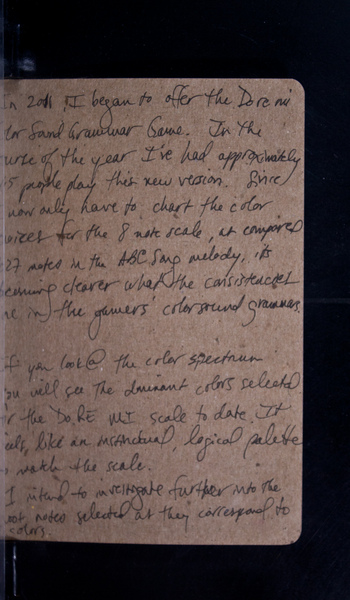 In 2011, I began to offer the Do re mi
Color Sound Grammar Game. In the
course of the year I've had approximately
5 people play this new version. Since
I now only have to chart the color
choices per the 8 note scale, as compared
27 notes in the ABC Song melody, its
becoming clearer what the consistencies
are in the gamers' colorsound grammars.
If you look @ the color spectrum
you will see the dominant colors selected
for the Do RE MI scale to date. It
feels, like an instinctual, logical palette
to match the scale.
I intend to investigate further into the
root notes selected as they correspond to
colors.